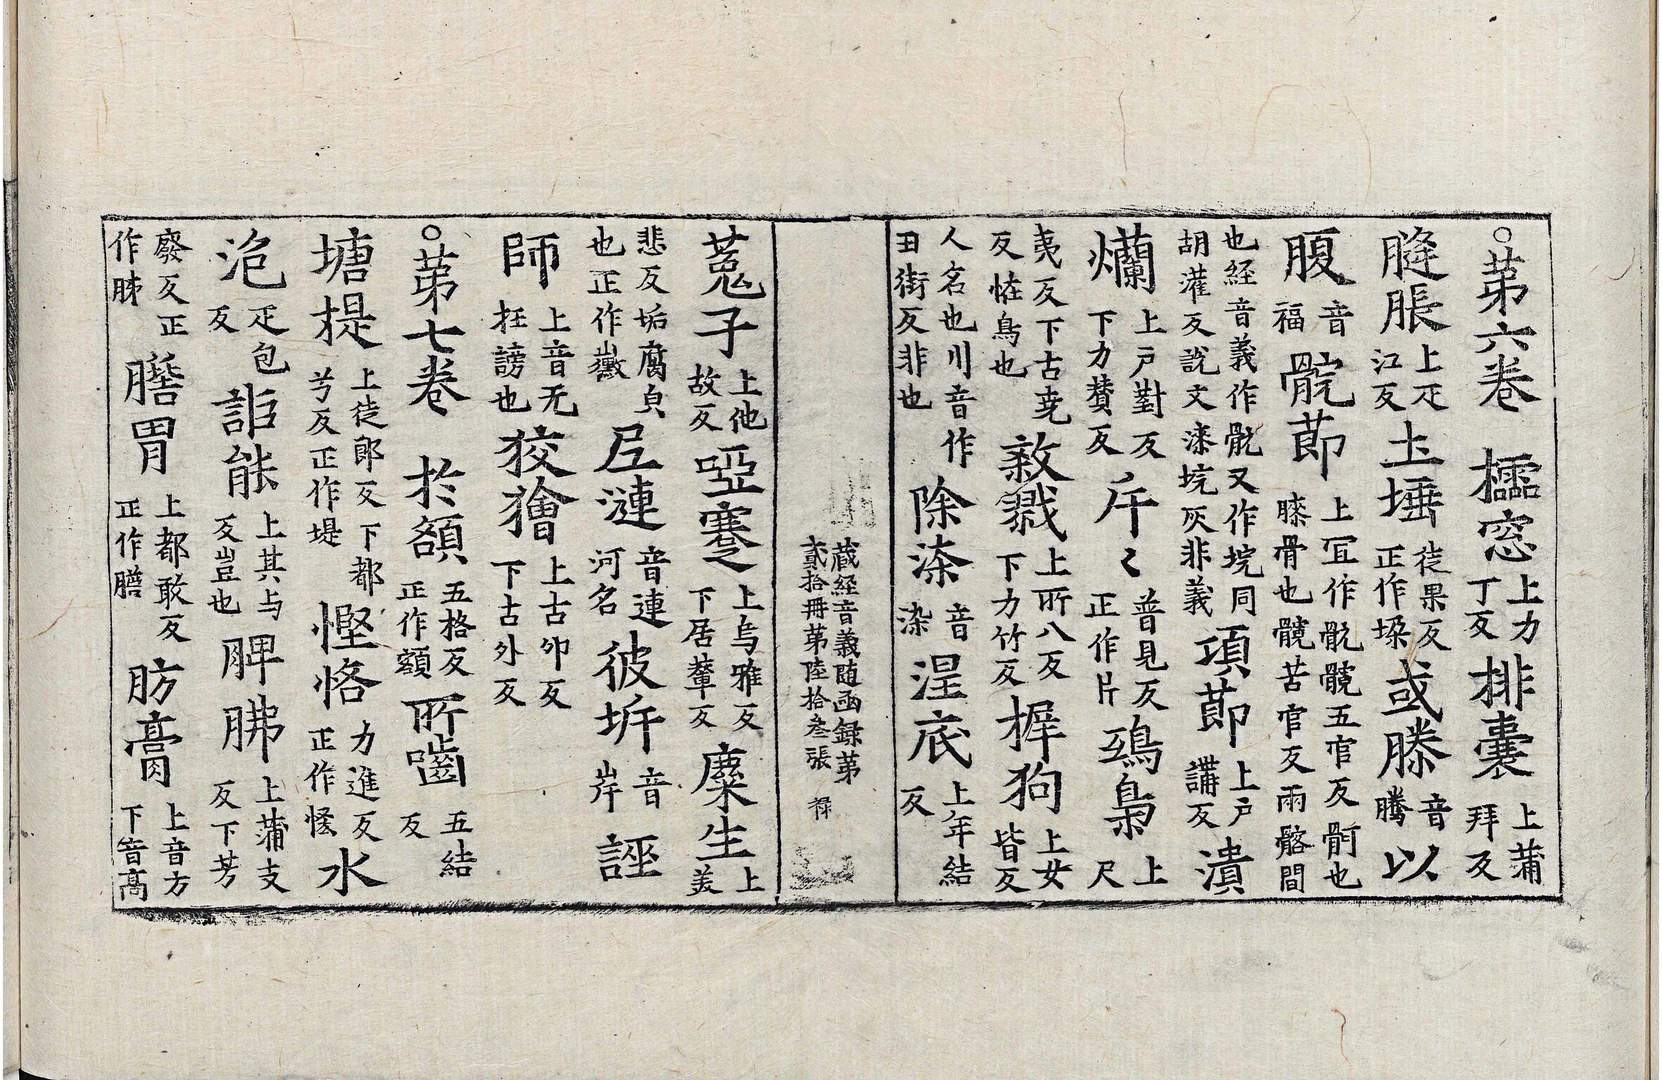 ○苐六卷　櫺窓上力丁反排囊上蒲拜反
膖脹上疋江反土埵徒果反正作垜或幐音騰以
腹音福䯘莭上冝作骯髖五官反骬也䐡骨也髖苦官反兩髂間
也経音義作骯又作垸同胡灌反說文漆垸灰非義項莭上户講反潰
爛上户對反下力賛反斤〻普見反正作片鵶梟上尺
夷反下古尭反恠鳥也敹戮上所八反下力竹反搱狗上女皆反
人名也川音作丑街反非也除㓒音染涅底上年結反
藏経音義随函録苐貳拾冊苐陸拾叁張　禄
菟子上他故反啞蹇上烏雅反下居輦反麋生上美
悲反垢腐皃也正作黴𡰱漣音連河名彼㘹音岸誣
師上音无抂謗也狡獪上古夘反下古外反
○苐七卷　扵頟五格反正作額所嚙五結反
塘㮛上徒郎反下都𠔃反正作堤慳悋力進反正作恡水
㳈疋包反詎能上其与反豈也脾胇上蒲支反下芳
廢反正作肺膽胃上都敢反正作膽肪膏上音方下音髙